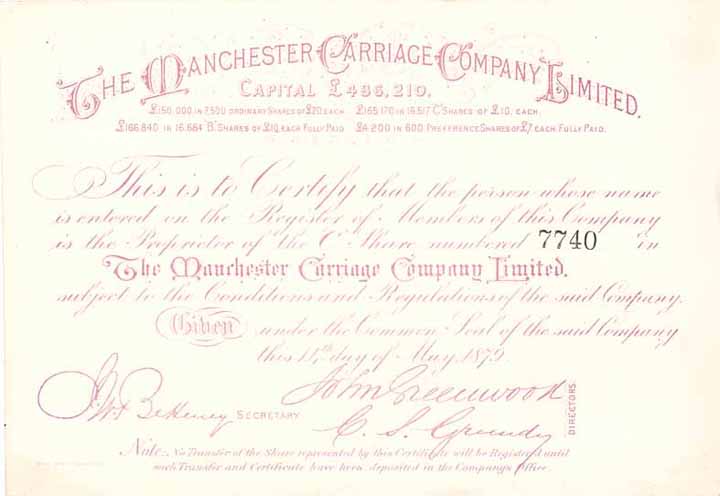 The Manchester Carriage Company Limited.
Capital £486,210.
£150,000 in 7,500 Ordinary Shares of £20 each. £165,170 in 16,517 "C" Shares of £10, each.
£166,840 in 16,684 "B" Shares of £10 each Fully Paid £4,200 in 600 Preference Shares of £7 each Fully Paid.
This is to Certify that the person whose name
is entered on the Register of Members of this Company
is the Proprietor of the "C" Share numbered 7740 in
The Manchester Carriage Company Limited.
subject to the Conditions and Regulations of the said Company.
Given under the Common Seal of the said Company
this day of May, 1879
Secretary
John Greenwood
C. S. Grundy
Directors
Note: No Transfer of the Share represented by this Certificate will be Registered until
such Transfer and Certificate have been deposited in the Company's Office.